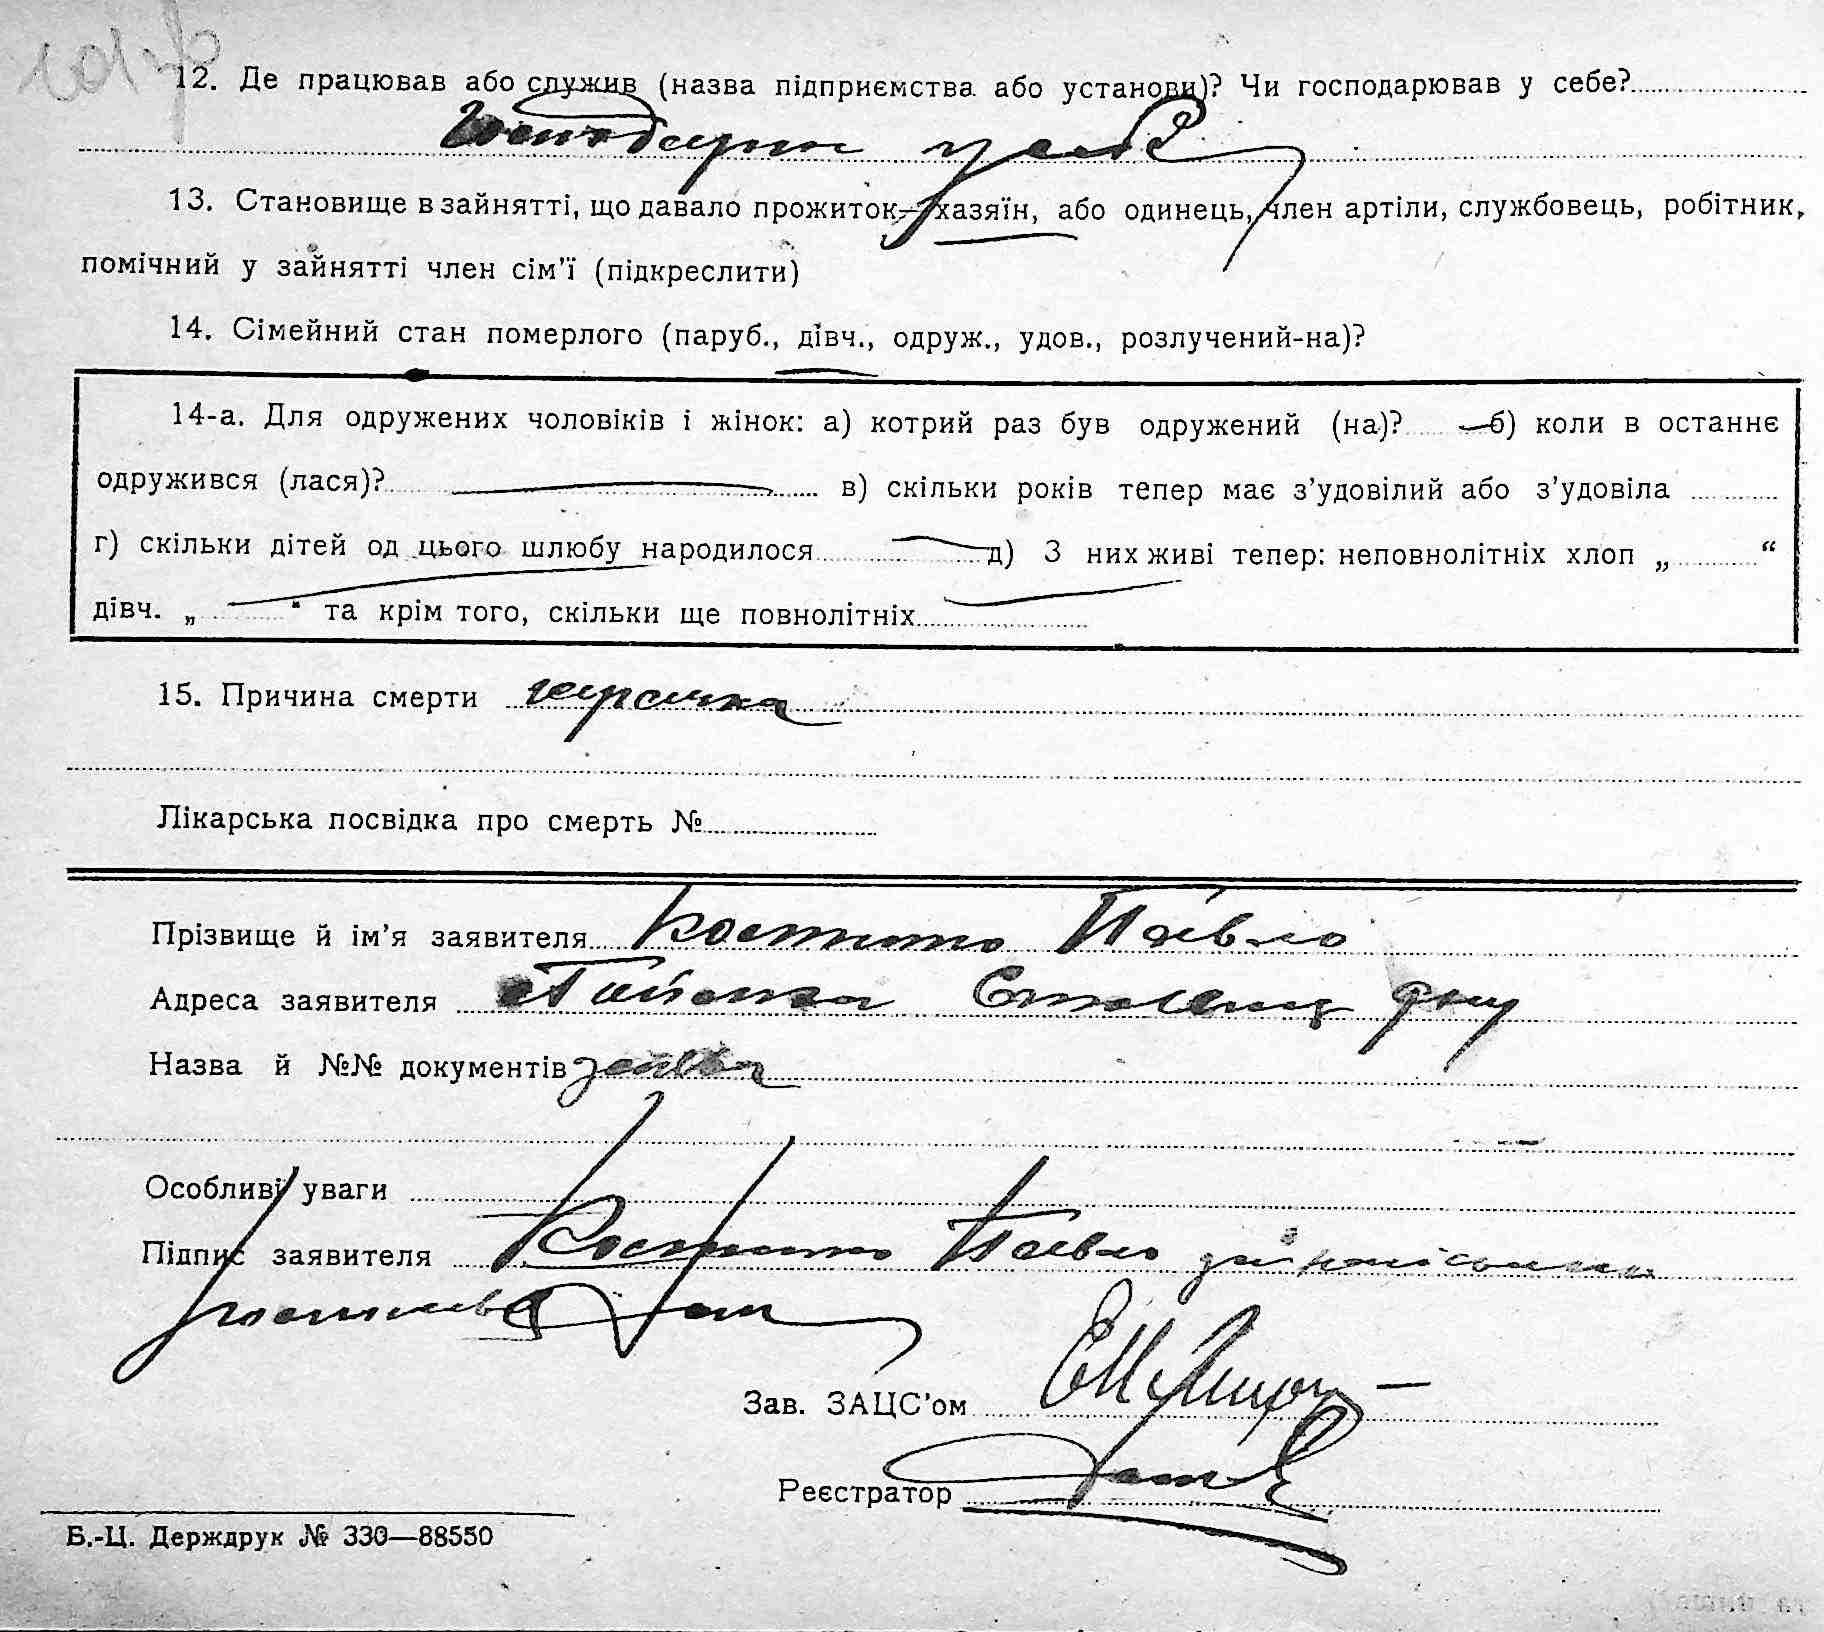 12. Де працював або служив (назва підприємства або установи)? Чи господарював у себе?
у себе
13. Становище в зайнятті, що давало прожиток—хазяїн, або одинець, член артіли, службовець, робітник,
помічний у зайнятті член сім'ї (підкреслити)
14. Сімейний стан померлого (паруб., дівч., одруж., удов., розлучений-на)?
14-а. Для одружених чоловіків і жінок: а) котрий раз був одружений (на)? — б) коли в останнє
одружився (лася)? в) скільки років тепер має з'удовілий або з'удовіла
г) скільки дітей од цього шлюбу народилося д) З них живі тепер: неповнолітніх хлоп „ “
дівч. „ “ та крім того, скільки ще повнолітніх
15. Причина смерти
Лікарська посвідка про смерть №
Прізвище й ім'я заявителя Павло
Адреса заявителя
Назва й №№ документів заява
Особливі уваги
Підпис заявителя Павло
Зав. ЗАЦС'ом
Реєстратор
Б.-Ц. Держдрук № 330—88550